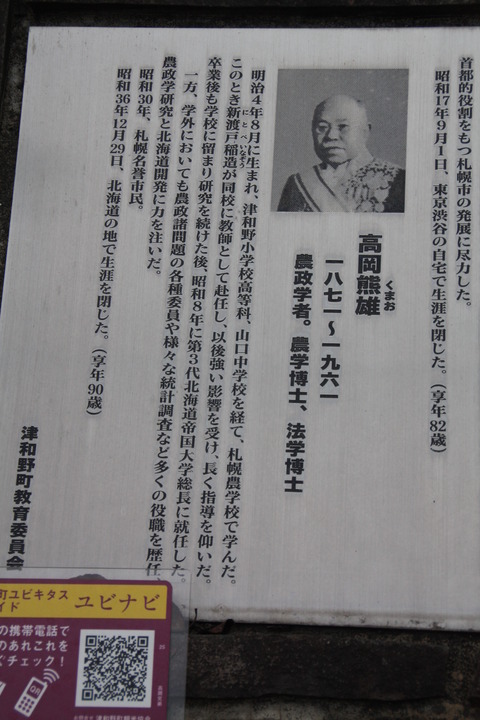 首都的役割をもつ札幌市の発展に尽力した。
昭和17年9月1日、東京渋谷の自宅で生涯を閉じた。（享年82歳）
高岡熊雄
くまお
一八七一～一九六一
農政学者。農学博士、法学博士
明治4年8月に生まれ、津和野小学校高等科、山口中学校を経て、札幌農学校で学んだ。
このとき新渡戸稲造が同校に教師として赴任し、以後強い影響を受け、長く指導を仰いだ。
にとべいなぞう
卒業後も学校に留まり研究を続けた後、昭和8年に第3代北海道帝国大学総長に就任した。
一方、学外においても農政諸問題の各種委員や様々な統計調査など多くの役職を歴任、
農政学研究と北海道開発に力を注いだ。
昭和30年、札幌名誉市民。
昭和36年12月29日、北海道の地で生涯を閉じた。（享年90歳）
津和野町教育委員会
町ユビキタス
イド
ユビナビ
の携帯電話で
のあれこれを
チェック！
QR